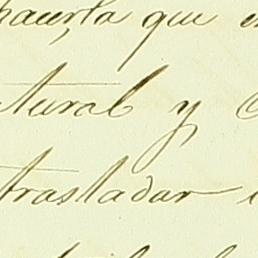 hacerla que
tural y
trasladar